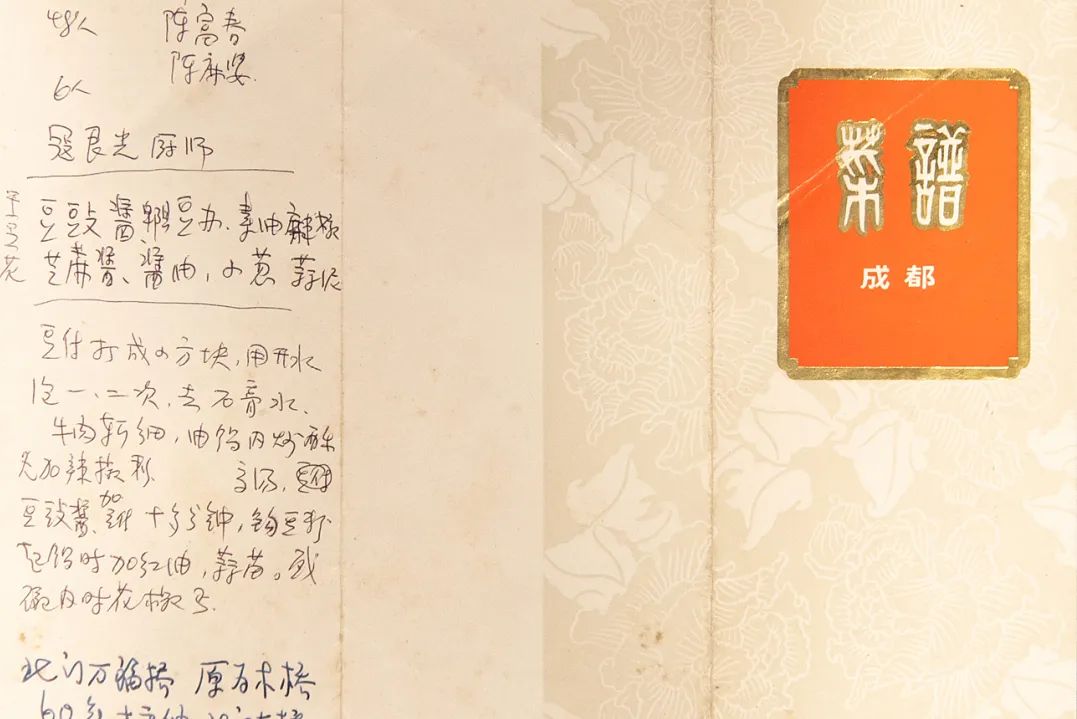 48人 陈富春
陈麻婆
6人
寇良光 厨师
豆豉酱、郫县豆办、素油辣椒
芝麻酱、酱油，小葱 蒜泥
豆付打成小方块，用开水
泡一、二次，去石膏水、
牛肉斩细，油锅内炒酥
先加辣椒 高汤，
豆豉酱、加 十多分钟，
起锅时加红油，蒜苗。成
碗内时花椒
北门万福桥 原 木桥
60年
菜譜
成都